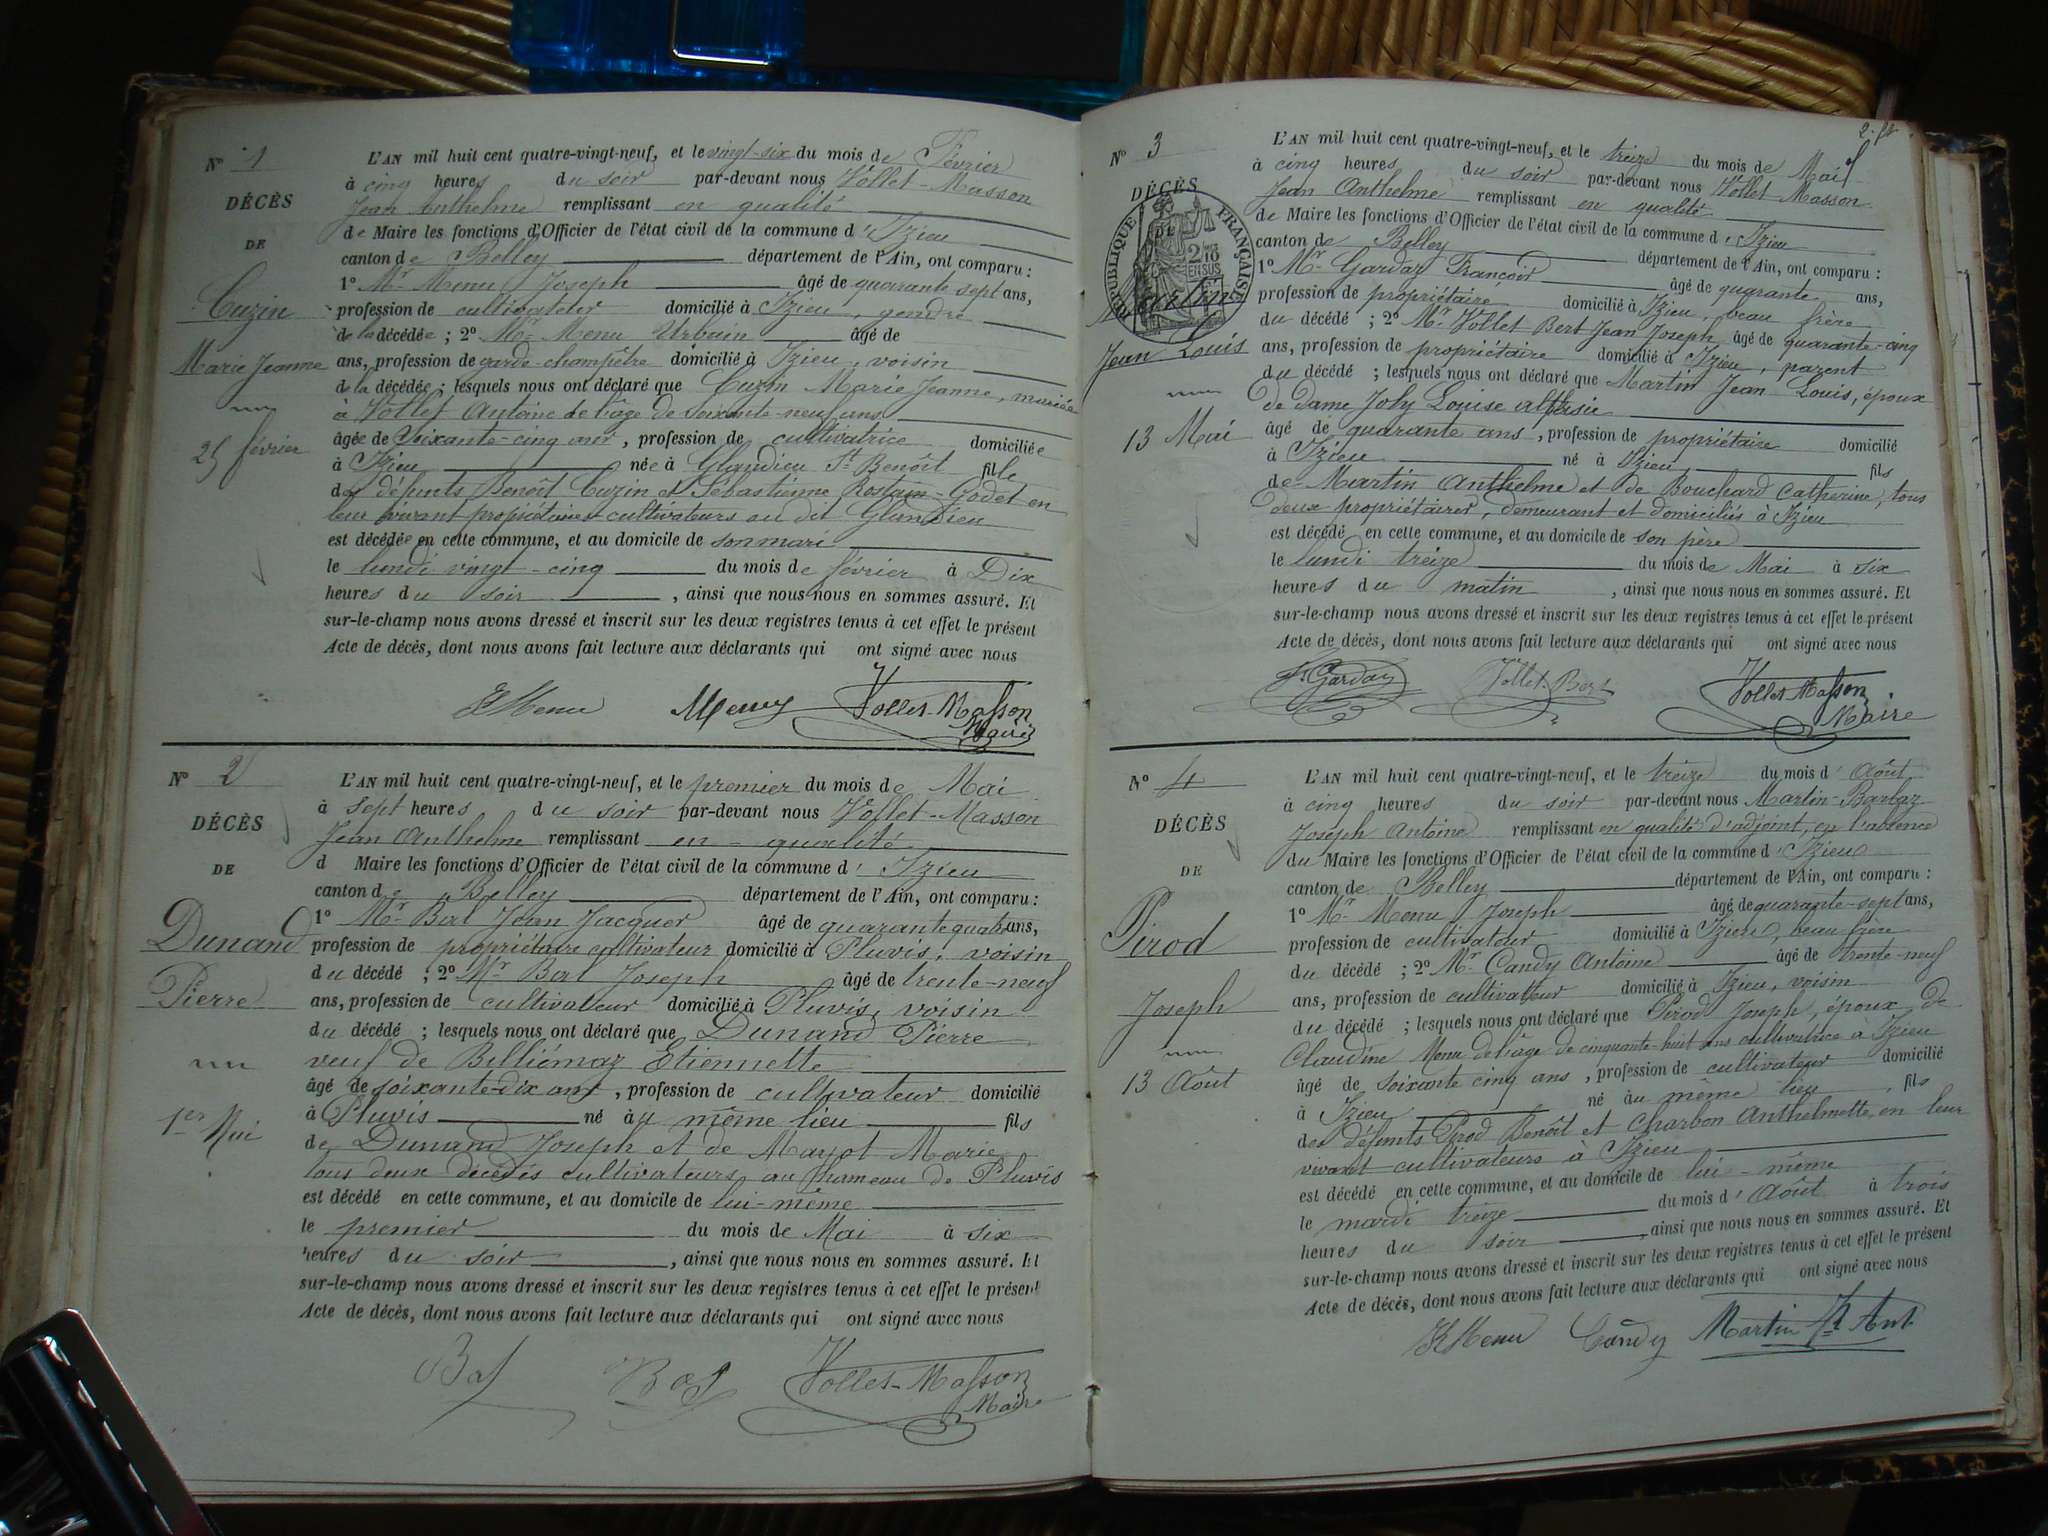 N° 1
DÉCÈS
DE
Cuzin
Marie Jeanne
25 février
L'AN mil huit cent quatre-vingt-neuf, et le vingt-six du mois de Février
à cinq heures du soir par-devant nous Vollet-Masson
Jean Anthelme remplissant en qualité
de Maire les fonctions d'Officier de l'état civil de la commune d'Izieu
canton de Belley département de l'Ain, ont comparu :
1° Mr Menu Joseph âgé de quarante sept ans,
profession de cultivateur domicilié à Izieu, gendre
de la décédée ; 2° Mr Menu Urbain âgé de
ans, profession de garde-champêtre domicilié à Izieu, voisin
de la décédée ; lesquels nous ont déclaré que Cuzin Marie Jeanne, mariée
à Vollet Antoine de l'âge de soixante-neuf ans
âgée de soixante-cinq ans, profession de cultivatrice domiciliée
à Izieu née à Glandieu St Benoît fille
des défunts Benoît Cuzin et Sébastienne Rostain-Godet en
leur vivant propriétaires cultivateurs au dit Glandieu
est décédée en cette commune, et au domicile de son mari
le lundi vingt-cinq du mois de février à Dix
heures du soir, ainsi que nous nous en sommes assuré. Et
sur-le-champ nous avons dressé et inscrit sur les deux registres tenus à cet effet le présent
Acte de décès, dont nous avons fait lecture aux déclarants qui ont signé avec nous
Menu Menu Vollet-Masson
Maire
N° 2
DÉCÈS
DE
Dunand
Pierre
1er Mai
L'AN mil huit cent quatre-vingt-neuf, et le premier du mois de Mai
à sept heures du soir par-devant nous Vollet-Masson
Jean Anthelme remplissant en qualité
d Maire les fonctions d'Officier de l'état civil de la commune d'Izieu
canton de Belley département de l'Ain, ont comparu :
1° Mr Bal Jean Jacques âgé de quarante quatre ans,
profession de propriétaire cultivateur domicilié à Pluvis, voisin
du décédé ; 2° Mr Bal Joseph âgé de trente-neuf
ans, profession de cultivateur domicilié à Pluvis, voisin
du décédé ; lesquels nous ont déclaré que Dunand Pierre
veuf de Billiémaz Etiennette
âgé de soixante-dix ans, profession de cultivateur domicilié
à Pluvis né au même lieu fils
de Dunand Joseph et de Marie
tous deux décédés cultivateurs au hameau de Pluvis
est décédé en cette commune, et au domicile de lui-même
le premier du mois de Mai à six
heures du soir, ainsi que nous nous en sommes assuré. Et
sur-le-champ nous avons dressé et inscrit sur les deux registres tenus à cet effet le présent
Acte de décès, dont nous avons fait lecture aux déclarants qui ont signé avec nous
Bal Bal Vollet-Masson
Maire
N° 3
DÉCÈS
RÉPUBLIQUE FRANÇAISE
Martin
Jean Louis
13 Mai
L'AN mil huit cent quatre-vingt-neuf, et le treize du mois de Mai
à cinq heures du soir par-devant nous Vollet Masson
Jean Anthelme remplissant en qualité
de Maire les fonctions d'Officier de l'état civil de la commune d'Izieu
canton de Belley département de l'Ain, ont comparu :
1° Mr Garday François âgé de quarante ans,
profession de propriétaire domicilié à Izieu, beau frère
du décédé ; 2° Mr Vollet Bert Jean Joseph âgé de quarante-cinq
ans, profession de propriétaire domicilié à Izieu, parent
du décédé ; lesquels nous ont déclaré que Martin Jean Louis, époux
de dame Joly Louise
âgé de quarante ans, profession de propriétaire domicilié
à Izieu né à Izieu fils
de Martin Anthelme et de Bouchard Catherine, tous
deux propriétaires, demeurant et domiciliés à Izieu
est décédé en cette commune, et au domicile de son père
le lundi treize du mois de Mai à six
heures du matin, ainsi que nous nous en sommes assuré. Et
sur-le-champ nous avons dressé et inscrit sur les deux registres tenus à cet effet le présent
Acte de décès, dont nous avons fait lecture aux déclarants qui ont signé avec nous
Garday Vollet-Bert Vollet-Masson
Maire
N° 4
DÉCÈS
DE
Pirod
Joseph
13 Août
L'AN mil huit cent quatre-vingt-neuf, et le treize du mois d'Août
à cinq heures du soir par-devant nous Martin-Barbaz
Joseph Antoine remplissant en qualité d'adjoint, en l'absence
du Maire les fonctions d'Officier de l'état civil de la commune d'Izieu
canton de Belley département de l'Ain, ont comparu :
1° Mr Menu Joseph âgé de quarante-sept ans,
profession de cultivateur domicilié à Izieu, beau frère
du décédé ; 2° Mr Candy Antoine âgé de trente-neuf
ans, profession de cultivateur domicilié à Izieu, voisin
du décédé ; lesquels nous ont déclaré que Pirod Joseph, époux de
Claudine Menu de l'âge de cinquante-huit ans cultivatrice à Izieu
âgé de soixante cinq ans, profession de cultivateur domicilié
à Izieu né au même lieu, fils
des défunts Pirod Benoît et Charbon Anthelmette, en leur
vivant cultivateurs à Izieu
est décédé en cette commune, et au domicile de lui-même
le mardi treize du mois d'Août à trois
heures du soir, ainsi que nous nous en sommes assuré. Et
sur-le-champ nous avons dressé et inscrit sur les deux registres tenus à cet effet le présent
Acte de décès, dont nous avons fait lecture aux déclarants qui ont signé avec nous
Menu Candy Martin Ant